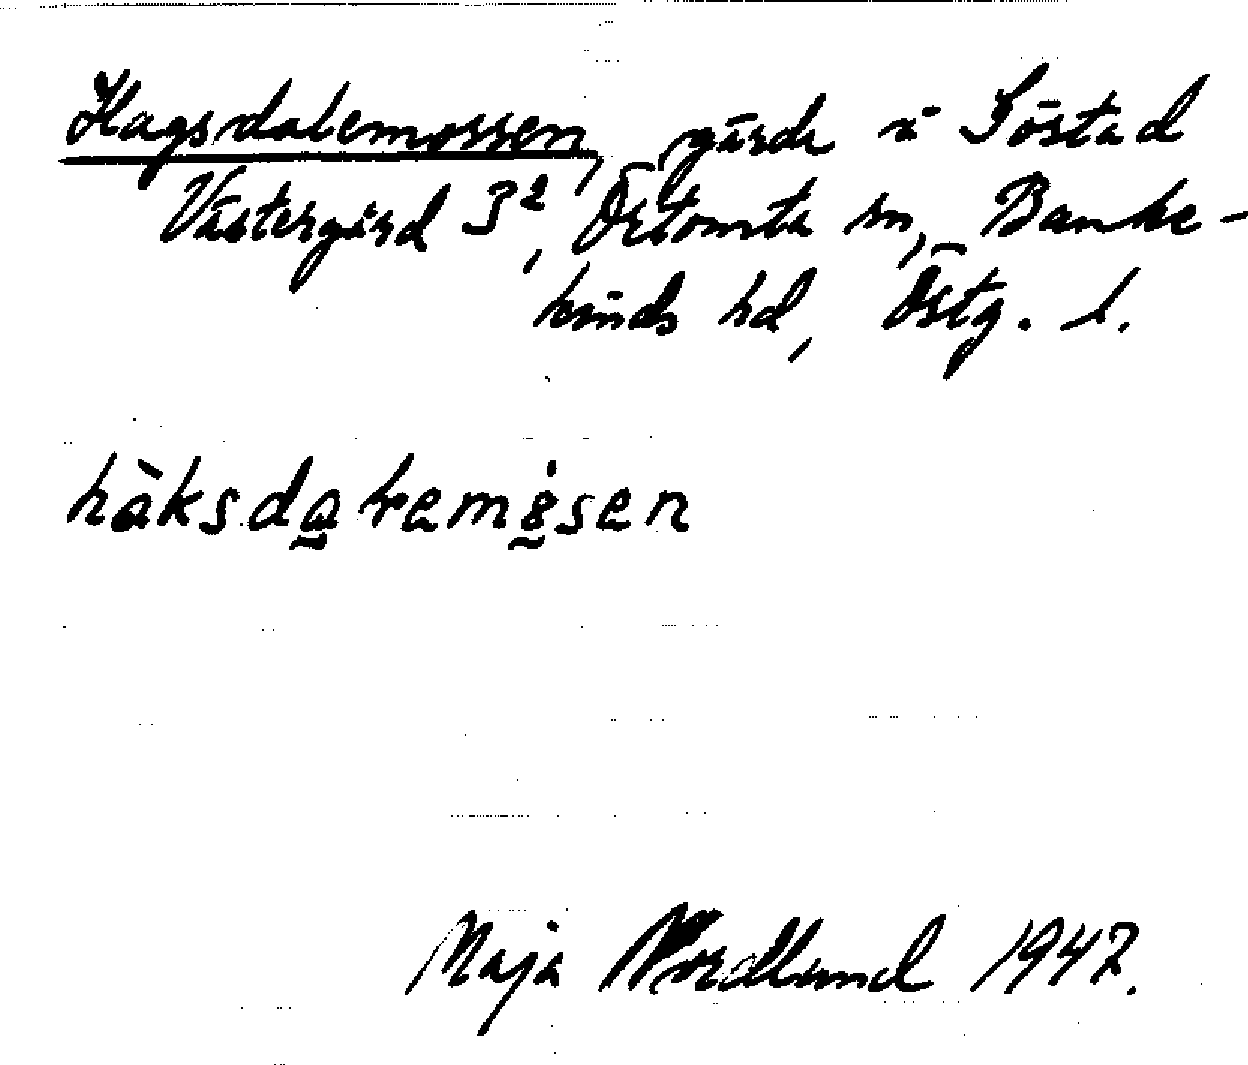 Hagsdalemossen, gärde i Söstad
Västergård 3², Östomta sn, Banke-
kinds hd, Östg. l.
håksdaɫemɵ̀sen
Maja Nordlund 1947.